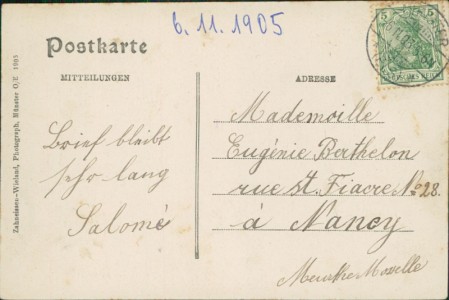 6. 11. 1905
Postkarte
MITTEILUNGEN
ADRESSE
Brief bleibt
sehr lang
Salomé
Mademoille
Eugénie Berthelon
rue St. Fiacre No 28.
à Nancy
Meurthe Moselle
Zahneissen-Wieland, Photograph, Münster O/E 1905
5 5
DEUTSCHES REICH